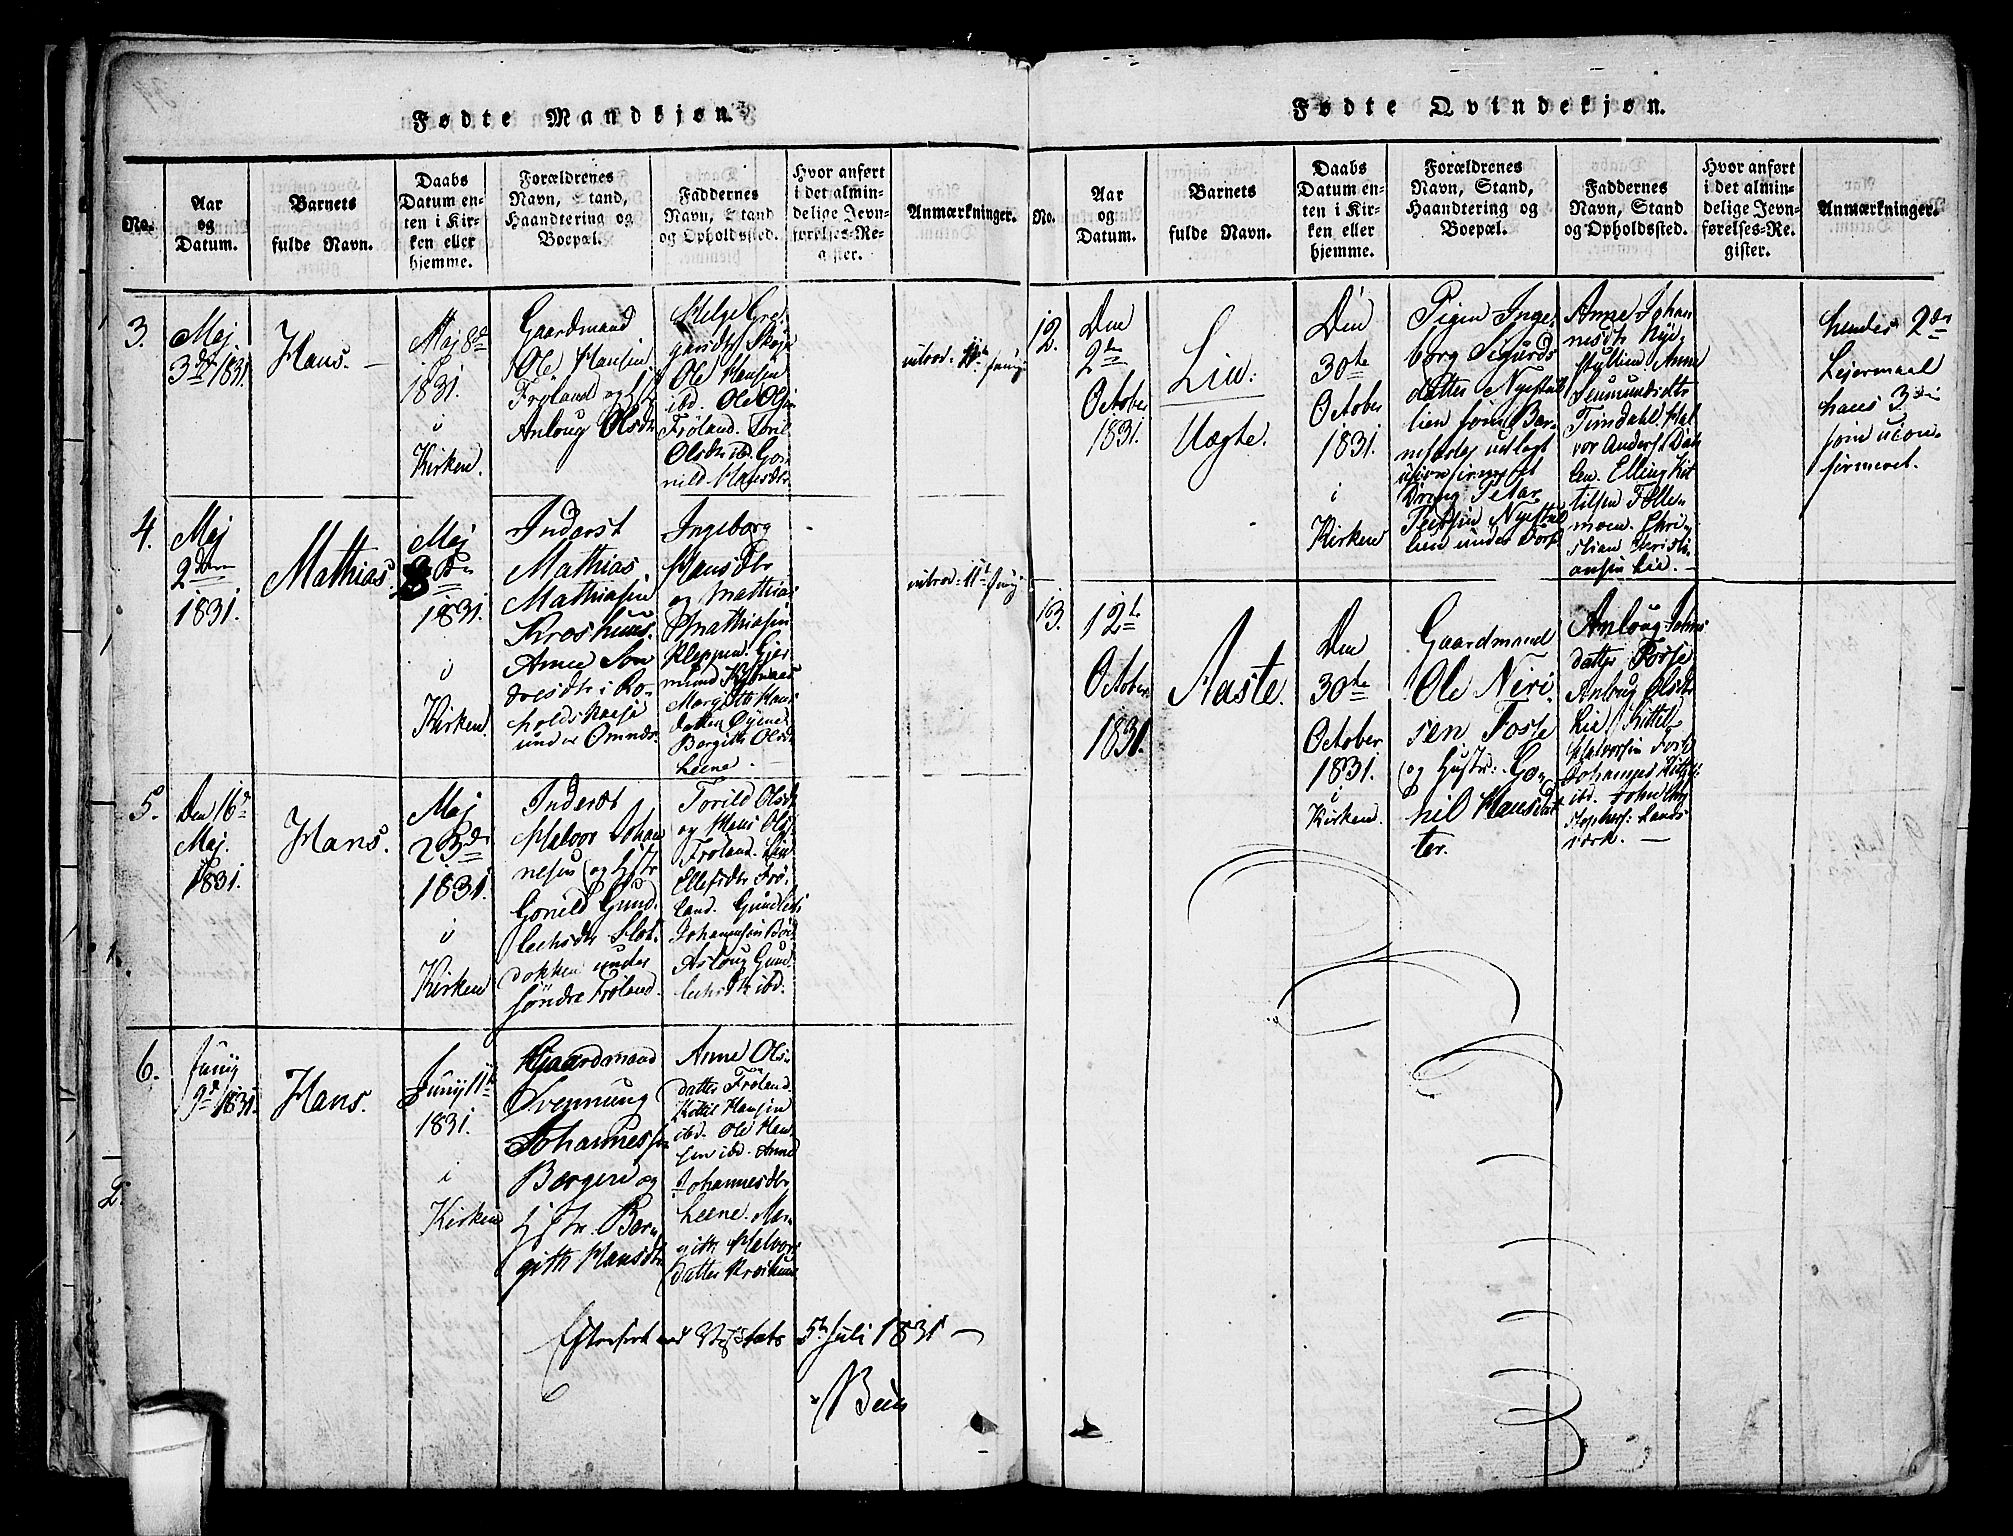 Fødte Mandkjøn.
No.
Aar
og
Datum.
Barnets
fulde Navn.
Daabs
Datum en-
ten i Kir-
ken eller
hjemme.
Forældrenes
Navn, Stand,
Haandtering og
Boepæl.
Faddernes
Navn, Stand
og Opholdssted.
Hvor anført
i det almin-
delige Jevn-
førelses-Re-
gister.
Anmærkninger.
3.
Maj
3die 1831.
Hans.
Maj 8de
1831.
i
Kirken.
Gaardmand
Ole Hansen
Frøland og Hstr
Anlaug Olsdtr
Helge Gre-
Ole Hansen
ibd. Ole Olsen
Frøland. Toril
Olsdtr ibd. Go-
nild Hansdtr.
introd. 11te Junij
4.
Maj
2den
1831.
Mathias.
Maj
8de
1831.
i
Kirken.
Inderst
Mathias
Mathiasen
Kroshuus.
Anne Ton
under Omnes.
Ingeborg
Hansdtr
og Mathias
Mathiasen
Kleppen.
Margith Han
Bergith Olsdtr
Leene.
introd. 11te Junij
5.
Den 16de
Maj.
1831.
Hans.
Maj
23de
1831.
i
Kirken
Inderst
Halvor Johan
nesen og Hstr
Gonild Gund
lechsdtr Slot-
dokken under
søndre Frøland.
Torild Olsdtr
og Hans Ols.
Frøland. Liv
Ellefsdtr Frø-
land. Gundlech
Johannesen
Aslaug Gund
lechsdtr ibd.
6.
Junij
9de 1831.
Hans.
Junij 11te
1831.
i
Kirken
Gaardmand
Svennung
Johannessen
Bergene og
Hstr. Ber
gith Hansdtr
Anne Ols-
datter Frøland.
Kittil Hansen
ibd. Ole Han
sen ibd. Anne
Johannesdtr
Leene. Mar
gith Halvors
datter Kroshuus
5te Juli 1831
Fødte Qvindekjøn.
No.
Aar
og
Datum.
Barnets
fulde Navn.
Daabs
Datum en-
ten i Kir-
ken eller
hjemme.
Forældrenes
Navn, Stand,
Haandtering og
Boepæl.
Faddernes
Navn, Stand
og Opholdssted.
Hvor anført
i det almin-
delige Jevn-
førelses-Re-
gister.
Anmærkninger.
12.
Den
2de
October
1831.
Liv:
Uægte.
Den
30te
October
1831.
i
Kirken
Pigen Inge-
borg Sigurds
datter Nyestul
lien som Bar-
nefader udlagt
Dreng Petar
Pedersen Nyestul
lien under
Anne Johan
nesdtr Nye-
stullien Anne
Timdahl. Hal
vor Anders. Dah
len. Elling Kit
tilsen
moen. Chri-
stian Christi-
ansen Lie.
hendes 2det
Lejermaal
hans 3die
som ucon-
firmeret.
13.
12te
October
1831.
Aaste.
Den
30te
October
1831.
i
Kirken.
Gaardmand
Ole Neri-
sen Fosse
og Hustr: Go-
nil Hansdat
ter.
Anlaug Johns
datter Fosse
Anlaug Olsdtr
Lie Kittel
Halvorsen
Johannes Kittels:
ibd. John Chri
stophers: Lands
værk.